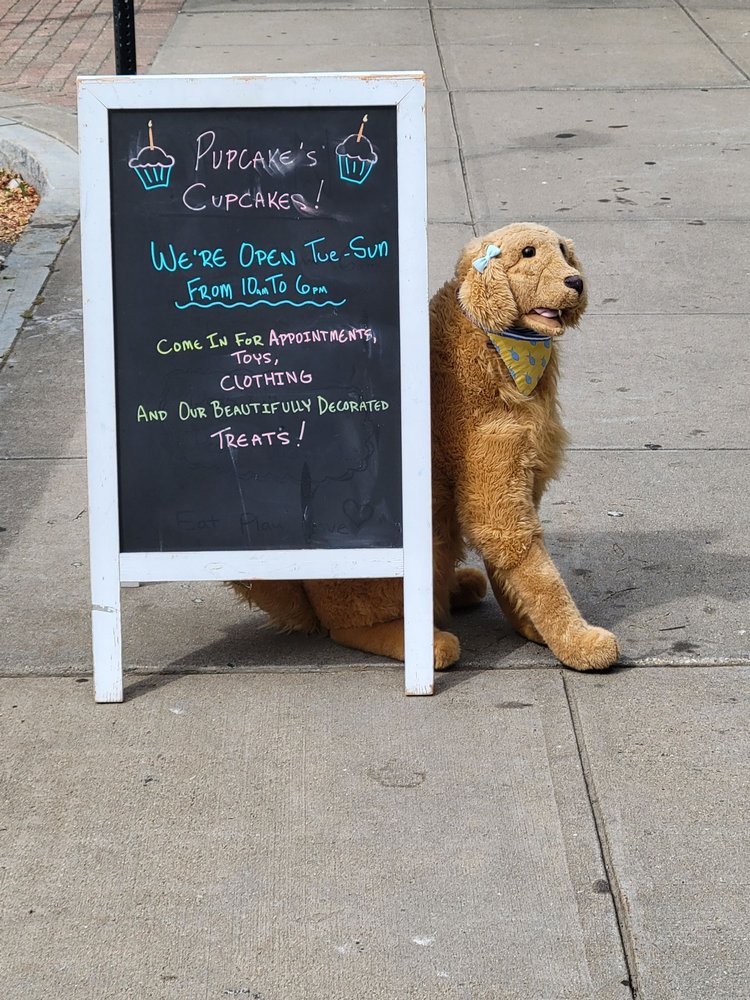 PUPCAKE'S
CUPCAKES!
WE'RE OPEN TUE-SUN
FROM 10AM TO 6PM
COME IN FOR APPOINTMENTS,
TOYS,
CLOTHING
AND OUR BEAUTIFULLY DECORATED
TREATS!
Eat Play Love